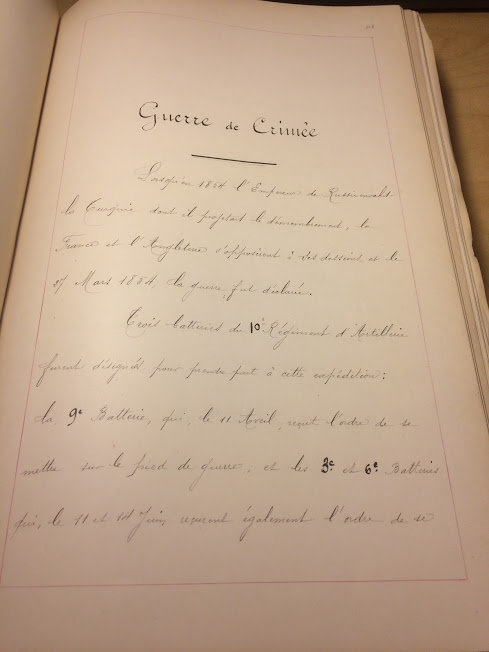 Guerre de Crimée
Lorsqu'en 1854 l'Empereur de Russie envahit
la Turquie dont il projetait le démembrement, la
France et l'Angleterre s'opposèrent à ses desseins et le
27 Mars 1854 la guerre fut déclarée.
Trois batteries du 10e Régiment d'Artillerie
furent désignées pour prendre part à cette expédition:
La 9e Batterie, qui, le 11 Avril, reçut l'ordre de se
mettre sur le pied de guerre; et les 3e et 6e Batteries
qui, le 11 et 14 Juin, reçurent également l'ordre de se